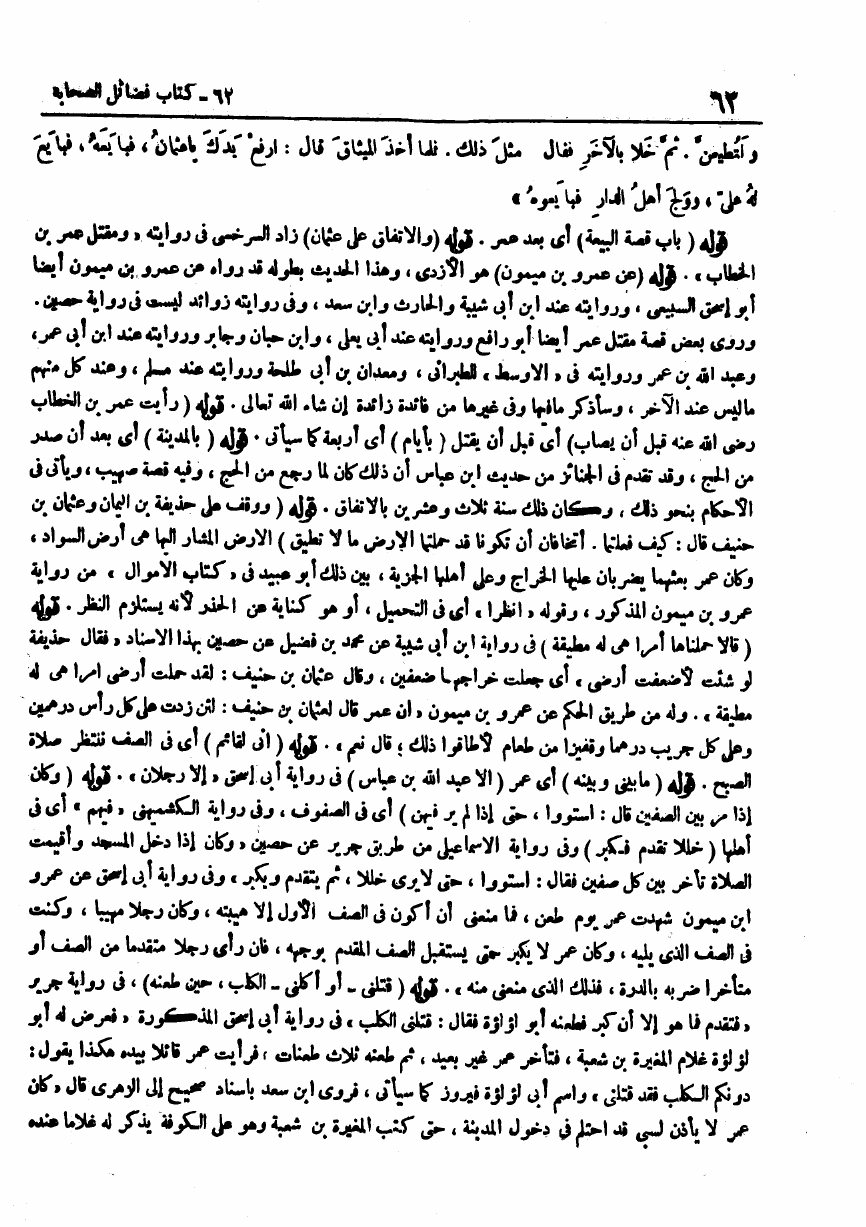 ٦٣
٦٢ - كتاب فضائل الصحابة
ولتُطيعنّ. ثمَّ خَلا بالآخَرِ فقال مثلَ ذلك. فلما أخذَ الميثاقَ قال: ارفعْ يَدَكَ ياعثمانُ، فبايَعَهُ، فبايَعَ
لهُ عليّ، ووَلَجَ أهلُ الدارِ فبايَعوهُ »
قوله (باب قصة البيعة) أى بعد عمر. قوله (والاتفاق على عثمان) زاد السرخسى فى روايته «ومقتل عمر بن
الخطاب». قوله (عن عمرو بن ميمون) هو الأزدى، وهذا الحديث بطوله قد رواه عن عمرو بن ميمون أيضا
أبو إسحق السبيعى، وروايته عند ابن أبى شيبة والحارث وابن سعد، وفى روايته زوائد ليست فى رواية حصين.
وروى بعض قصة مقتل عمر أيضا أبو رافع وروايته عند أبى يعلى، وابن حبان وجابر وروايته عند ابن أبى عمر،
وعبد الله بن عمر وروايته فى «الاوسط» للطبرانى، ومعدان بن أبى طلحة وروايته عند مسلم، وعند كل منهم
ماليس عند الآخر، وسأذكر مافيها وفى غيرها من فائدة زائدة إن شاء الله تعالى. قوله (رأيت عمر بن الخطاب
رضى الله عنه قبل أن يصاب) أى قبل أن يقتل (بأيام) أى أربعة كما سيأتى. قوله (بالمدينة) أى بعد أن صدر
من الحج، وقد تقدم فى الجنائز من حديث ابن عباس أن ذلك كان لما رجع من الحج، وفيه قصة صهيب، ويأتى فى
الأحكام بنحو ذلك، وكان ذلك سنة ثلاث وعشرين بالاتفاق. قوله (ووقف على حذيفة بن اليمان وعثمان بن
حنيف قال: كيف فعلتما. أتخافان أن تكونا قد حملتما الارض ما لا تطيق) الارض المشار اليها هى أرض السواد،
وكان عمر بعثهما يضربان عليها الخراج وعلى أهلها الجزية، بين ذلك أبو عبيد فى «كتاب الاموال» من رواية
عمرو بن ميمون المذكور، وقوله «انظرا» أى فى التحميل، أو هو كناية عن الحذر لأنه يستلزم النظر. قوله
(قالا حملناها أمرا هى له مطيقة) فى رواية ابن أبى شيبة عن محمد بن فضيل عن حصين بهذا الاسناد «فقال حذيفة
لو شئت لأضعفت أرضى» أى جعلت خراجها ضعفين، وقال عثمان بن حنيف: لقد حملت أرضى امرا هى له
مطيقة». وله من طريق الحكم عن عمرو بن ميمون «ان عمر قال لعثمان بن حنيف: لئن زدت على كل رأس درهمين
وعلى كل جريب درهما وقفيزا من طعام لأطاقوا ذلك؟ قال نعم». قوله (انى لقائم) أى فى الصف ننتظر صلاة
الصبح. قوله (مابينى وبينه) أى عمر (الا عبد الله بن عباس) فى رواية أبى إسحق «إلا رجلان». قوله (وكان
إذا مر بين الصفين قال: استووا، حتى إذا لم ير فيهن) أى فى الصفوف، وفى رواية الكشميهنى «فيهم» أى فى
أهلها (خللا تقدم فكبر) وفى رواية الاسماعيلى من طريق جرير عن حصين «وكان إذا دخل المسجد وأقيمت
الصلاة تأخر بين كل صفين فقال: استووا، حتى لايرى خللا، ثم يتقدم ويكبر» وفى رواية أبى إسحق عن عمرو
ابن ميمون شهدت عمر يوم طعن، فما منعنى أن أكون فى الصف الأول إلا هيبته، وكان رجلا مهيبا، وكنت
فى الصف الذى يليه، وكان عمر لا يكبر حتى يستقبل الصف المقدم بوجهه، فان رأى رجلا متقدما من الصف أو
متأخرا ضربه بالدرة، فذلك الذى منعنى منه». قوله (قتلنى - أو أكلنى - الكلب، حين طعنه)، فى رواية جرير
«فتقدم فما هو إلا أن كبر فطعنه أبو لؤلؤة فقال: قتلنى الكلب» فى رواية أبى إسحق المذكورة «فعرض له أبو
لؤلؤة غلام المغيرة بن شعبة، فتأخر عمر غير بعيد، ثم طعنه ثلاث طعنات، فرأيت عمر قائلا بيده هكذا يقول:
دونكم الكلب فقد قتلنى» واسم أبى لؤلؤة فيروز كما سيأتى، فروى ابن سعد باسناد صحيح إلى الزهرى قال «كان
عمر لا يأذن لسبى قد احتلم فى دخول المدينة، حتى كتب المغيرة بن شعبة وهو على الكوفة يذكر له غلاما عنده